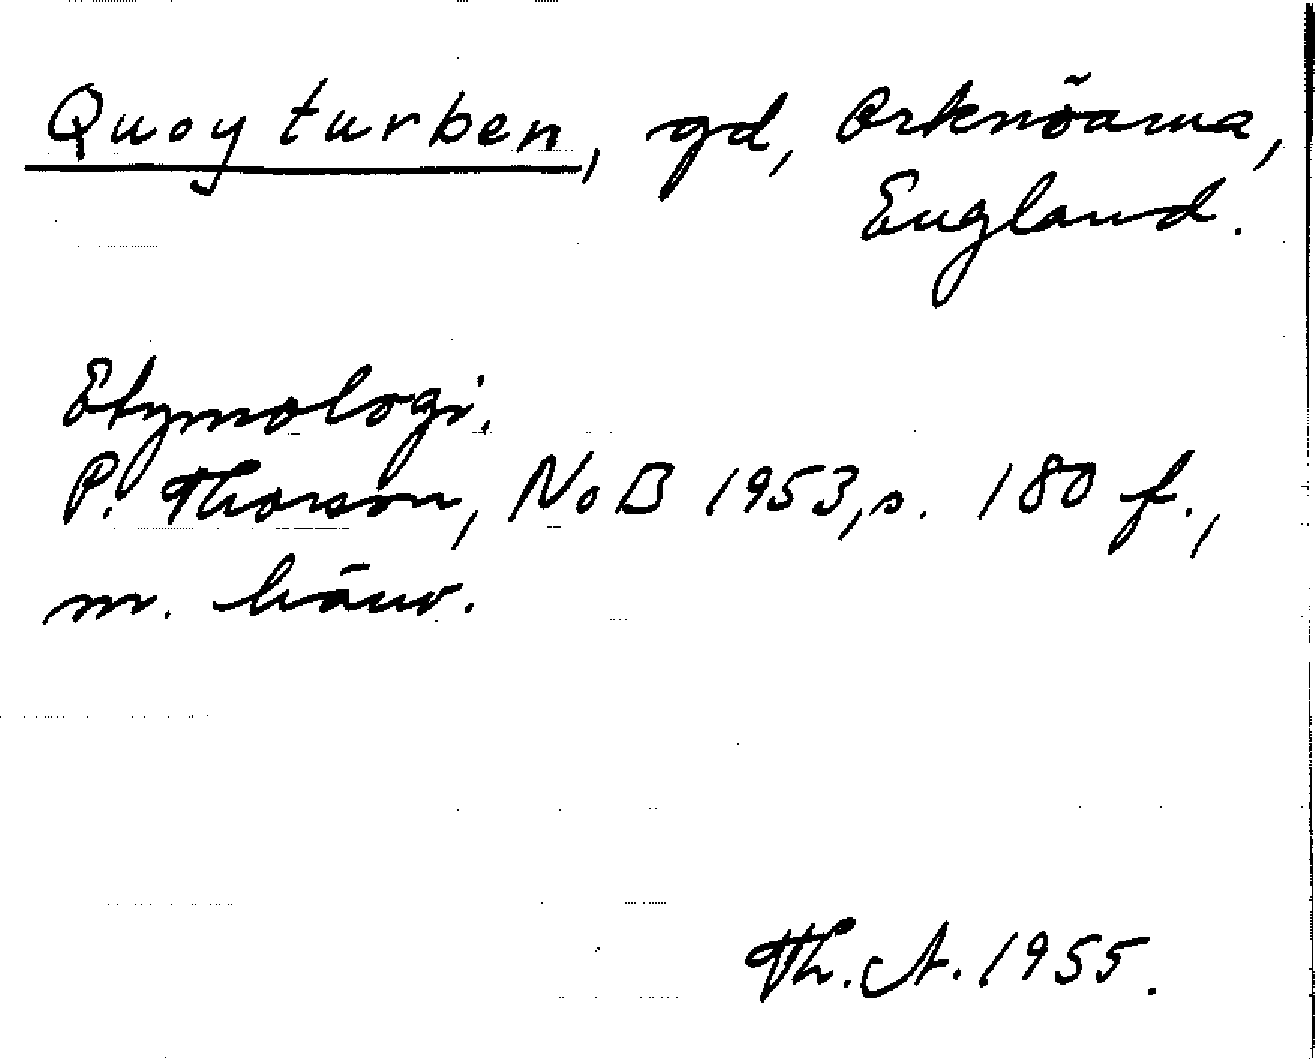 Quoy turben, gd, Orknöarna,
England.
Etymologi.
P. Thorson, NoB 1953, s. 180 f.,
m. hänv.
Th. A. 1955.